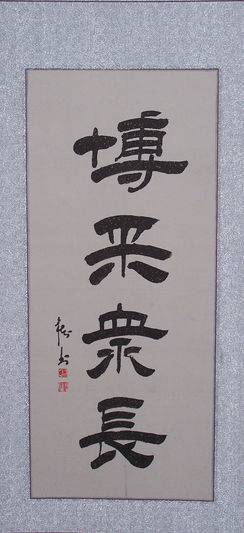 博采衆長